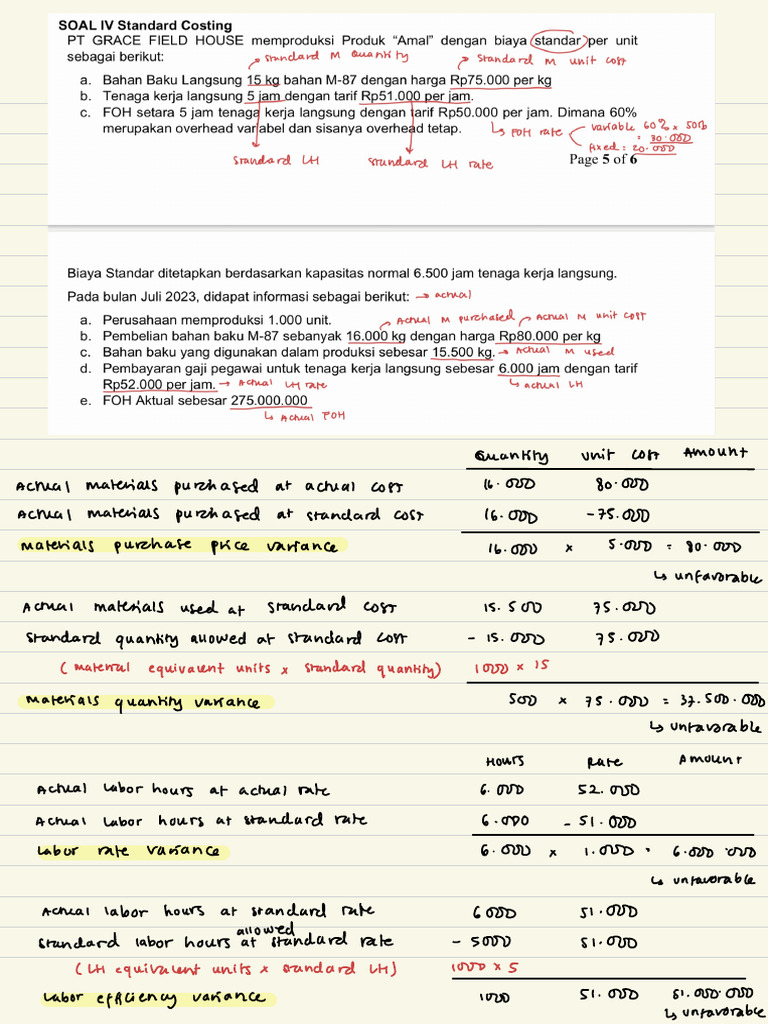 SOAL IV Standard Costing
PT GRACE FIELD HOUSE memproduksi Produk “Amal” dengan biaya standar per unit
sebagai berikut:
standard M Quantity
standard M unit cost
a. Bahan Baku Langsung 15 kg bahan M-87 dengan harga Rp75.000 per kg
b. Tenaga kerja langsung 5 jam dengan tarif Rp51.000 per jam.
c. FOH setara 5 jam tenaga kerja langsung dengan tarif Rp50.000 per jam. Dimana 60%
merupakan overhead variabel dan sisanya overhead tetap.
FOH rate
variable 60% x 50rb
= 30.000
fixed = 20.000
standard LH
standard LH rate
Page 5 of 6
Biaya Standar ditetapkan berdasarkan kapasitas normal 6.500 jam tenaga kerja langsung.
Pada bulan Juli 2023, didapat informasi sebagai berikut: → actual
a. Perusahaan memproduksi 1.000 unit.
Actual M purchased
Actual M unit cost
b. Pembelian bahan baku M-87 sebanyak 16.000 kg dengan harga Rp80.000 per kg
c. Bahan baku yang digunakan dalam produksi sebesar 15.500 kg. → Actual M used
d. Pembayaran gaji pegawai untuk tenaga kerja langsung sebesar 6.000 jam dengan tarif
Rp52.000 per jam. → Actual LH rate
actual LH
e. FOH Aktual sebesar 275.000.000
Actual FOH
Quantity unit cost Amount
Actual materials purchased at actual cost 16.000 80.000
Actual materials purchased at standard cost 16.000 -75.000
materials purchase price variance 16.000 x 5.000 = 80.000
↳ unfavorable
Actual materials used at standard cost 15.500 75.000
standard quantity allowed at standard cost - 15.000 75.000
(material equivalent units x standard quantity) 1000 x 15
Materials quantity variance 500 x 75.000 = 37.500.000
↳ unfavorable
Hours Rate Amount
Actual labor hours at actual rate 6.000 52.000
Actual labor hours at standard rate 6.000 - 51.000
Labor rate variance 6.000 x 1.000 = 6.000.000
↳ unfavorable
Actual labor hours at standard rate 6000 51.000
allowed
standard labor hours at standard rate - 5000 51.000
(LH equivalent units x standard LH) 1000 x 5
labor efficiency variance 1000 51.000 51.000.000
↳ unfavorable